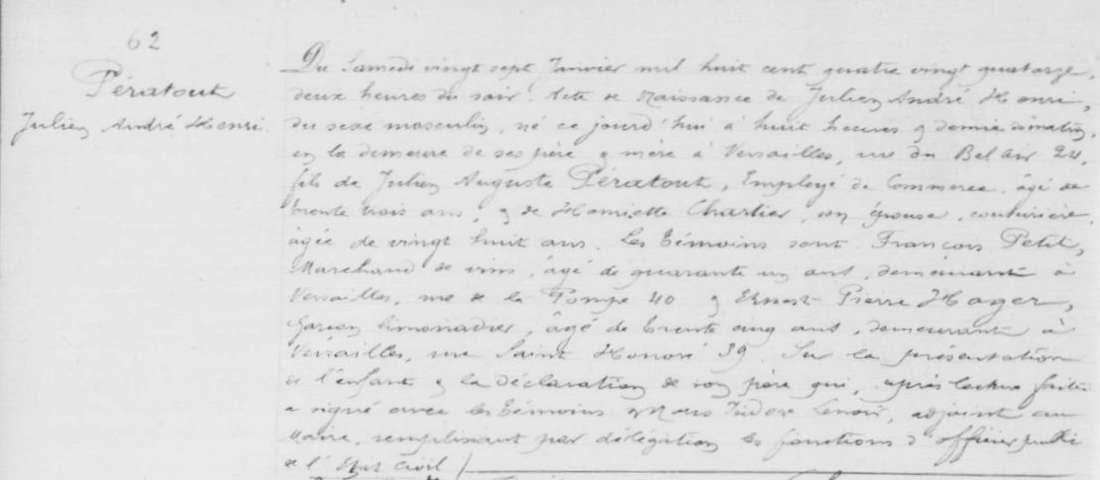 62
Pératout
Julien André Henri.
Du Samedi vingt sept Janvier mil huit cent quatre vingt quatorze,
deux heures du soir. Acte de Naissance de Julien André Henri,
du sexe masculin, né ce jourd'hui à huit heures & demie du matin,
en la demeure de ses père & mère à Versailles, rue du Bel Air 24,
fils de Julien Auguste Pératout, Employé de Commerce, âgé de
trente trois ans, & de Henriette Chartier, son épouse, couturière,
âgée de vingt huit ans. Les témoins sont François Petit,
Marchand de vins, âgé de quarante un ans, demeurant à
Versailles, rue de la Pompe 40 & Ernest Pierre Hager,
Garçon limonadier, âgé de trente cinq ans, demeurant à
Versailles, rue Saint Honoré 39. Sur la présentation
de l'enfant & la déclaration de son père qui, après lecture faite
a signé avec les témoins & Nous Isidore Lenoir, adjoint au
Maire, remplissant par délégation les fonctions d'officier public
de l'Etat Civil